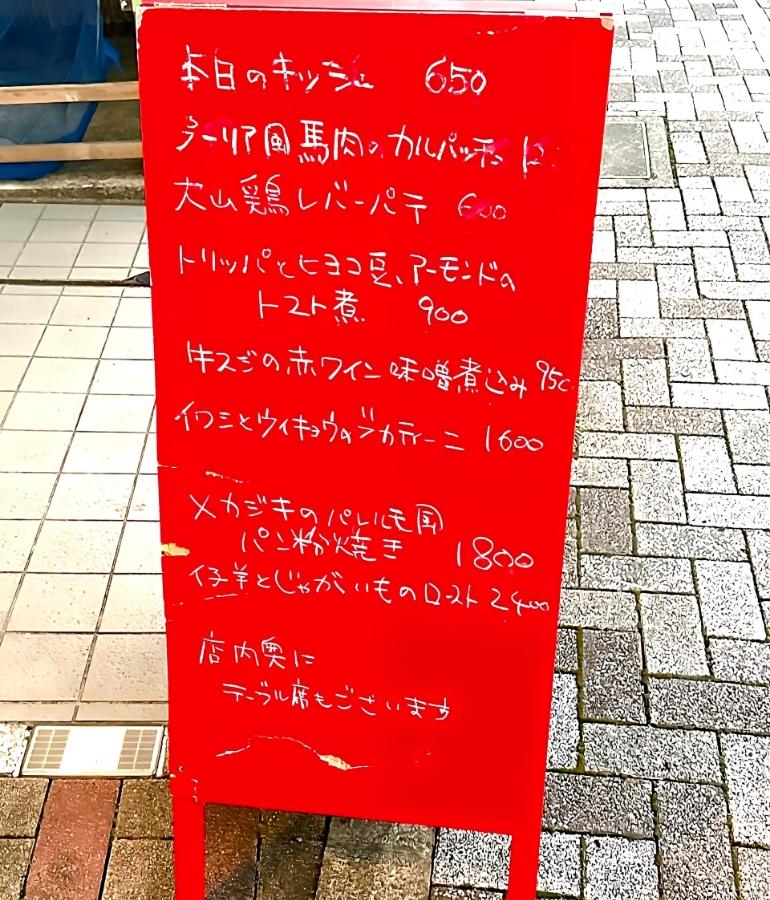 本日のキッシュ 650
プーリア風馬肉のカルパッチョ
大山鶏レバーパテ 600
トリッパとヒヨコ豆、アーモンドの
トマト煮 900
牛スジの赤ワイン味噌煮込み 950
イワシとウイキョウのブカティーニ 1600
メカジキのパレルモ風
パン粉焼き 1800
仔羊とじゃがいものロースト 2400
店内奥に
テーブル席もございます